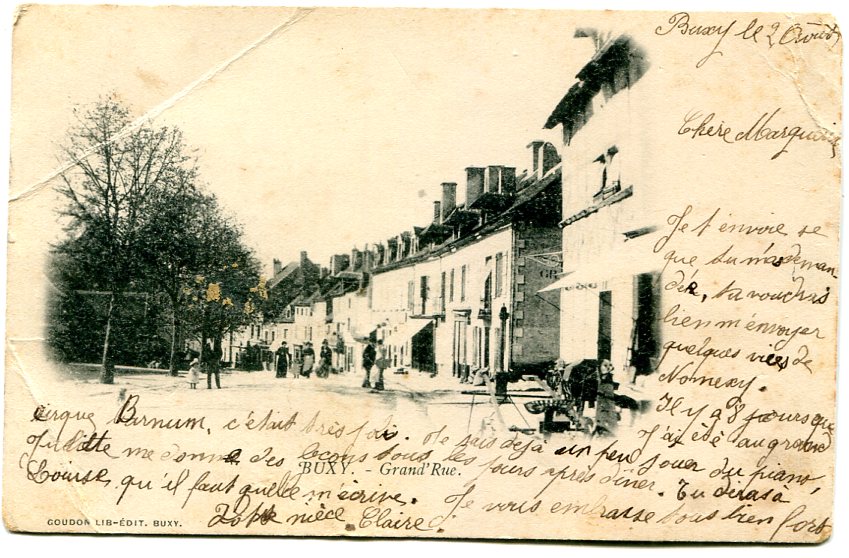 Buxy le 2 Août
Chère Marguerite
Je t'envoie se
que tu m'as deman
dér, tu voudrais
bien m'envoyer
quelques vues de
Nomexy.
Il y a 8 jours que
J'ai été au grand
cirque Barnum, c'était très joli. Je sais dejà un peu jouer du piano,
Juliette me donne des leçons tous les jours après dîner. Tu diras à
Louise, qu'il faut quelle m'écrive. Je vous embrasse tous bien fort
nièce Claire
BUXY. - Grand'Rue.
GOUDON LIB-ÉDIT. BUXY.
GR